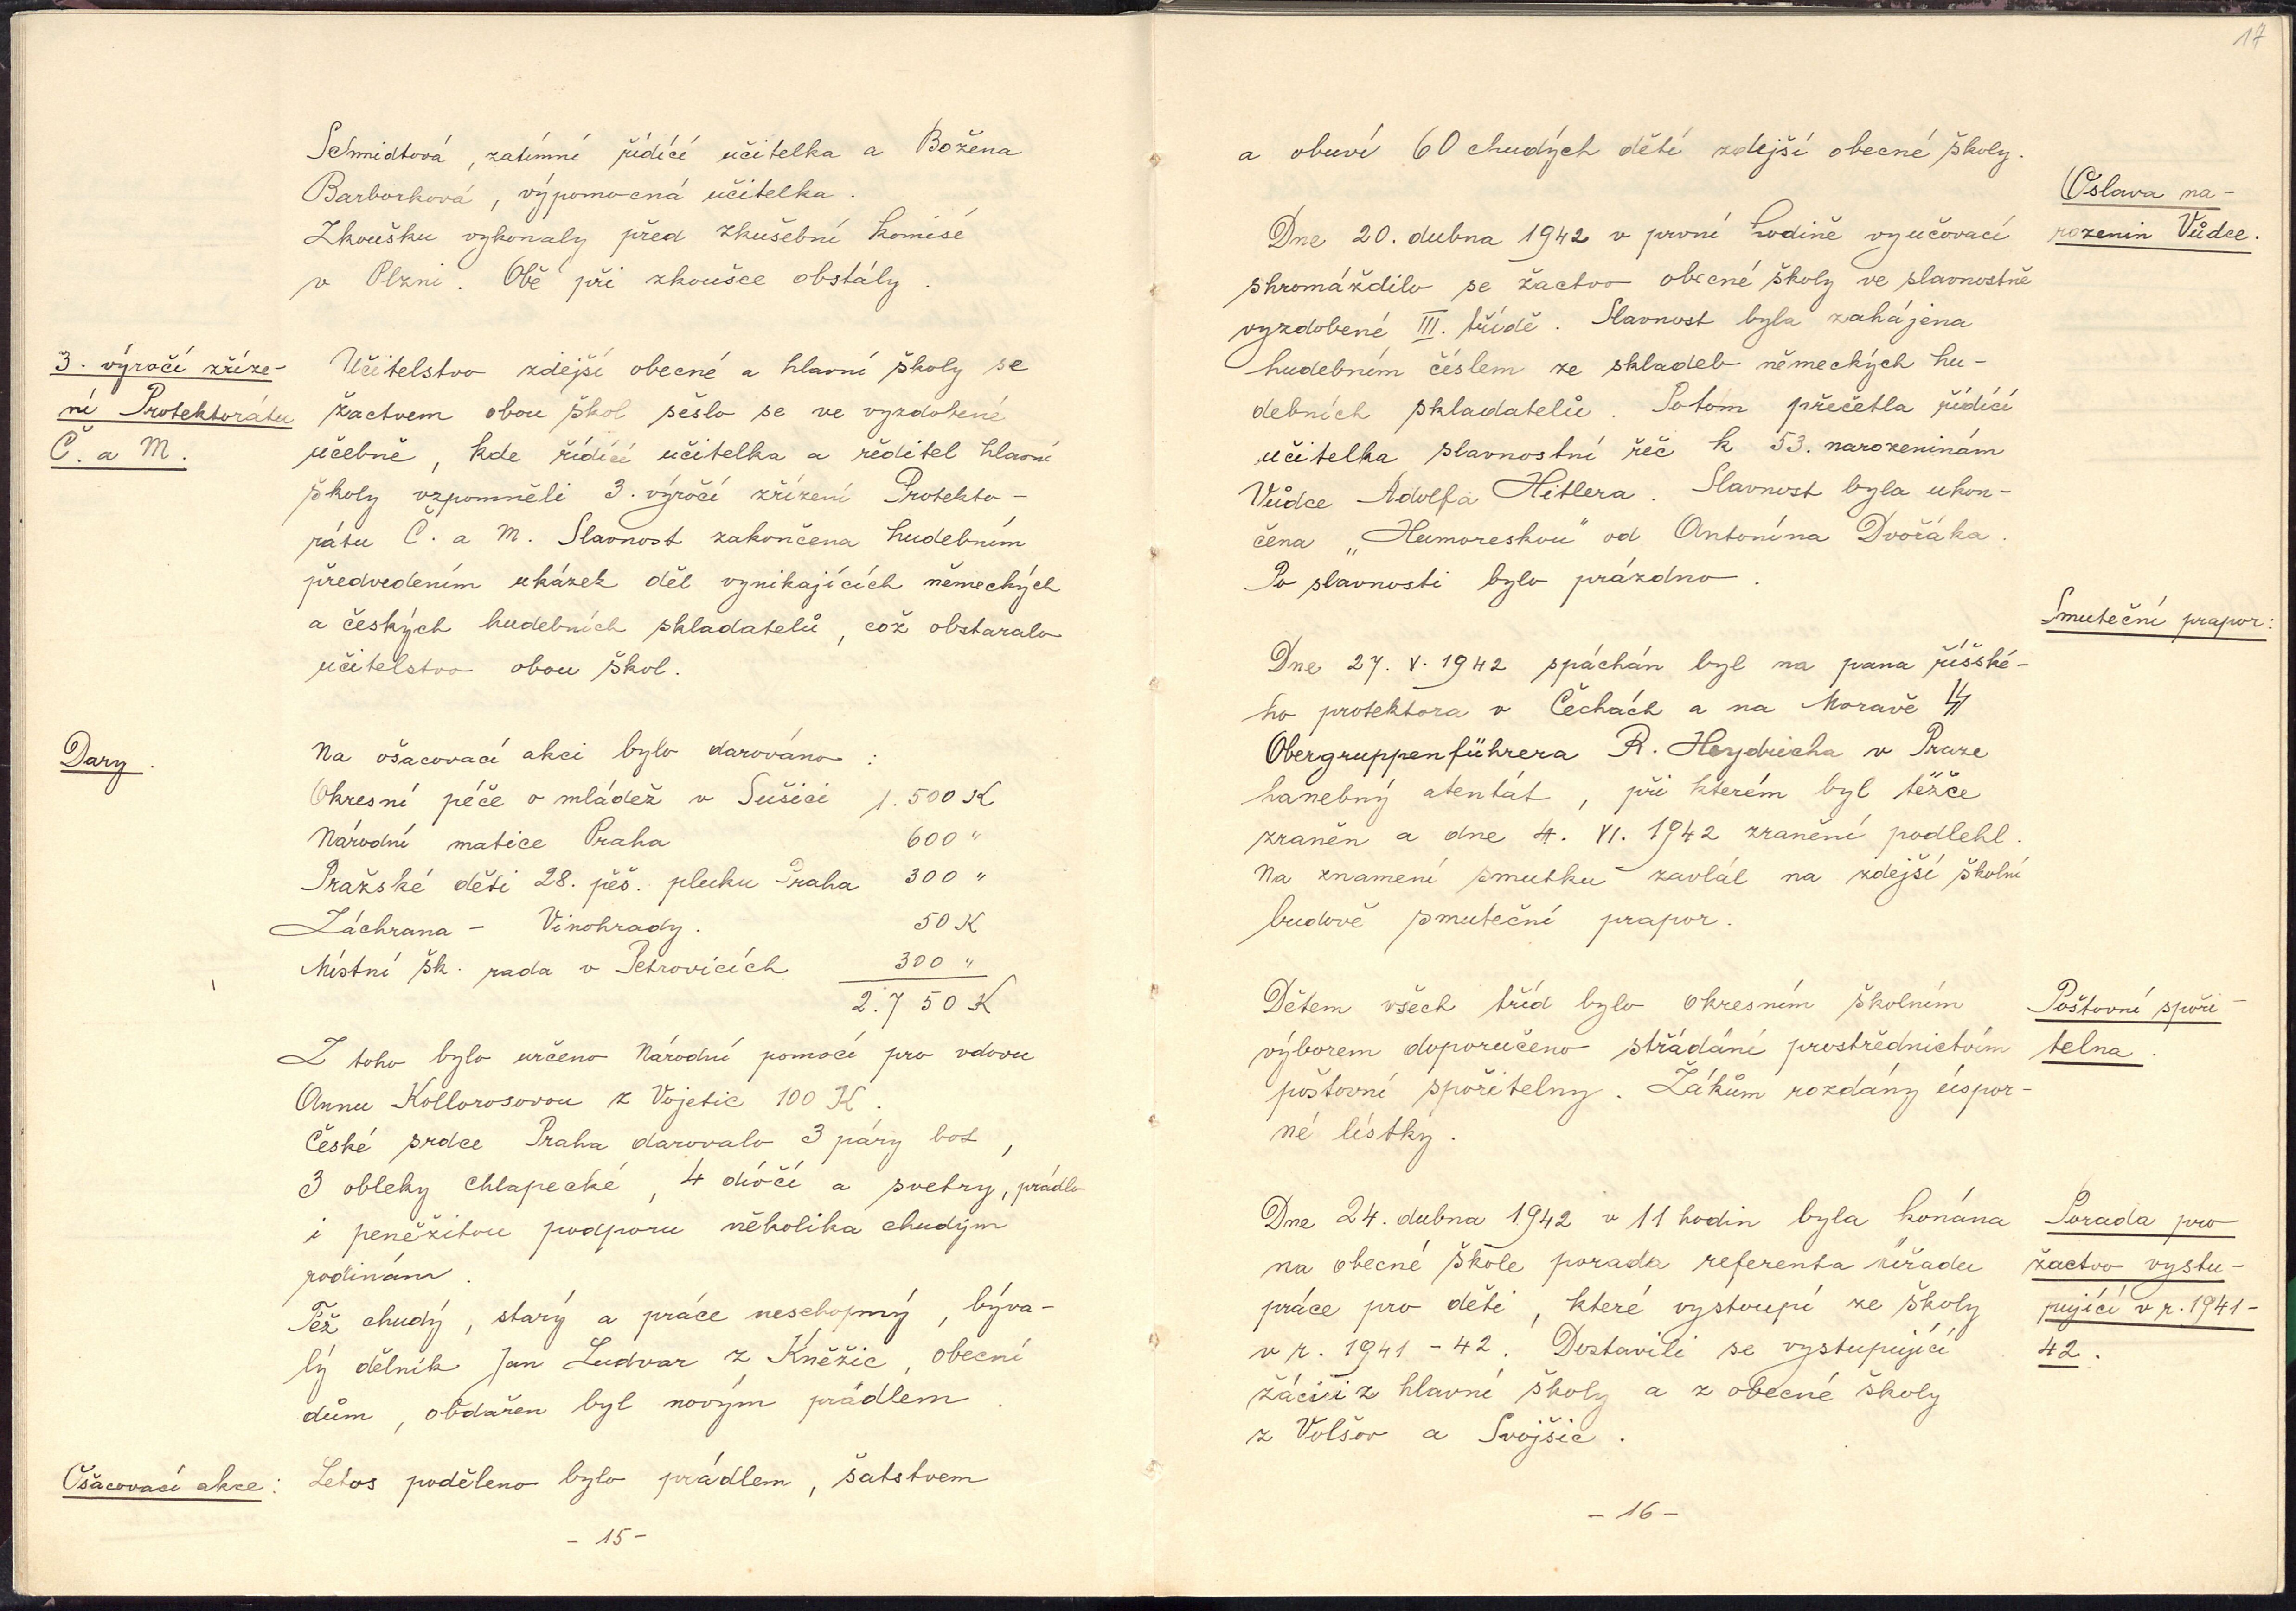 Schmidtová, zatímní řídící učitelka a Božena
Barborková, výpomocná učitelka.
Zkoušku vykonaly před zkušební komisí
v Plzni. Obě při zkoušce obstály.
3. výročí zříze-
ní Protektorátu
Č. a M.
Učitelstvo zdejší obecné a hlavní školy se
žactvem obou škol sešlo se ve vyzdobené
učebně, kde řídící učitelka a ředitel hlavní
školy vzpomněli 3. výročí zřízení Protekto-
rátu Č. a M. Slavnost zakončena hudebním
předvedením ukázek děl vynikajících německých
a českých hudebních skladatelů, což obstaralo
učitelstvo obou škol.
Dary.
Na ošacovací akci bylo darováno:
Okresní péče o mládež v Sušici 1.500 K
Národní matice Praha 600 "
Pražské děti 28. pěš. pluku Praha 300 "
Záchrana - Vinohrady. 50 K
Místní šk. rada v Petrovicích 300 "
2.750 K
Z toho bylo určeno Národní pomocí pro vdovu
Annu Kollorosovou z Vojetic 100 K.
České srdce Praha darovalo 3 páry bot,
3 obleky chlapecké, 4 dívčí a svetry, prádlo
i peněžitou podporu několika chudým
rodinám.
Též chudý, starý a práce neschopný, býva-
lý dělník Jan Ludvar z Kněžic, obecní
dům, obdařen byl novým prádlem.
Ošacovací akce:
Letos poděleno bylo prádlem, šatstvem
- 15 -
17
a obuví 60 chudých dětí zdejší obecné školy.
Oslava na-
rozenin Vůdce.
Dne 20. dubna 1942 v první hodině vyučovací
shromáždilo se žactvo obecné školy ve slavnostně
vyzdobené III. třídě. Slavnost byla zahájena
hudebním číslem ze skladeb německých hu-
debních skladatelů. Potom přečetla řídící
učitelka slavnostní řeč k 53. narozeninám
Vůdce Adolfa Hitlera. Slavnost byla ukon-
čena „Humoreskou" od Antonína Dvořáka.
Po slavnosti bylo prázdno.
Smuteční prapor:
Dne 27. V. 1942 spáchán byl na pana říšské-
ho protektora v Čechách a na Moravě SS
Obergruppenführera R. Heydricha v Praze
hanebný atentát, při kterém byl těžce
zraněn a dne 4. VI. 1942 zranění podlehl.
Na znamení smutku zavlál na zdejší školní
budově smuteční prapor.
Poštovní spoři-
telna.
Dětem všech tříd bylo okresním školním
výborem doporučeno střádání prostřednictvím
poštovní spořitelny. Žákům rozdány úspor-
né lístky.
Porada pro
žactvo vystu-
pující v r. 1941-
42.
Dne 24. dubna 1942 v 11 hodin byla konána
na obecné škole porada referenta úřadu
práce pro děti, které vystoupí ze školy
v r. 1941 - 42. Dostavili se vystupující
žáci i z hlavní školy a z obecné školy
z Volšov a Svojšic.
- 16 -